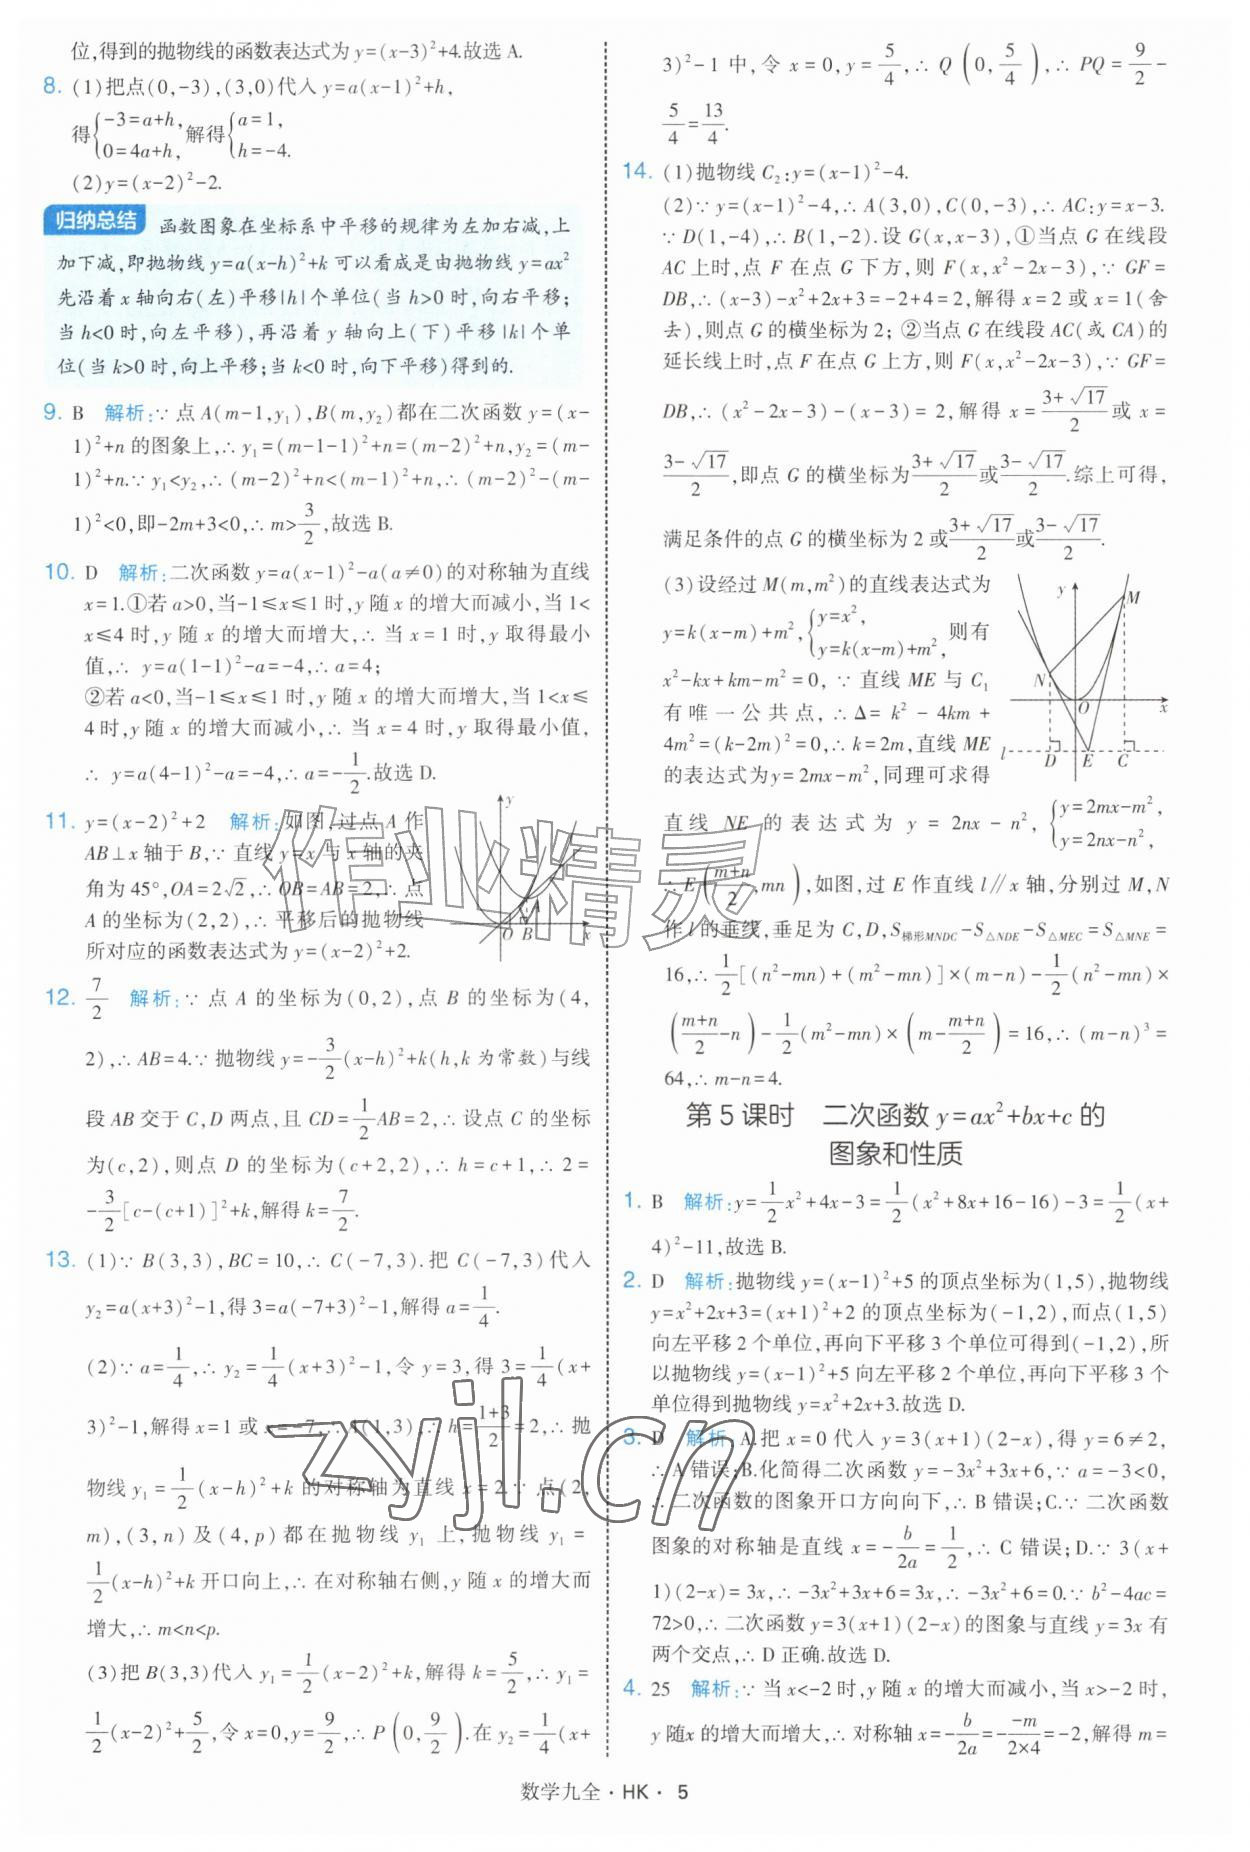 位,得到的抛物线的函数表达式为 y=(x-3)²+4.故选 A.
8. (1)把点(0,-3),(3,0)代入 y=a(x-1)²+h,
得{-3=a+h, 0=4a+h, 解得{a=1, h=-4.
(2)y=(x-2)²-2.
归纳总结 函数图象在坐标系中平移的规律为左加右减,上
加下减,即抛物线 y=a(x-h)²+k 可以看成是由抛物线 y=ax²
先沿着 x 轴向右(左)平移|h|个单位(当 h>0 时,向右平移;
当 h<0 时,向左平移),再沿着 y 轴向上(下)平移|k|个单
位(当 k>0 时,向上平移;当 k<0 时,向下平移)得到的.
9. B 解析:∵ 点 A(m-1,y₁),B(m,y₂)都在二次函数 y=(x-
1)²+n 的图象上,∴ y₁=(m-1-1)²+n=(m-2)²+n,y₂=(m-
1)²+n.∵ y₁<y₂,∴ (m-2)²+n<(m-1)²+n,∴ (m-2)²-(m-
1)²<0,即-2m+3<0,∴ m>3/2,故选 B.
10. D 解析:二次函数 y=a(x-1)²-a(a≠0)的对称轴为直线
x=1.①若 a>0,当-1≤x≤1 时,y 随 x 的增大而减小,当 1<
x≤4 时,y 随 x 的增大而增大,∴ 当 x=1 时,y 取得最小
值,∴ y=a(1-1)²-a=-4,∴ a=4;
②若 a<0,当-1≤x≤1 时,y 随 x 的增大而增大,当 1<x≤
4 时,y 随 x 的增大而减小,∴ 当 x=4 时,y 取得最小值,
∴ y=a(4-1)²-a=-4,∴ a=-1/2.故选 D.
11. y=(x-2)²+2 解析:如图,过点 A 作
AB⊥x 轴于 B,∵ 直线 y=x 与 x 轴的夹
角为 45°,OA=2√2,∴ OB=AB=2,∴ 点
A 的坐标为(2,2),∴ 平移后的抛物线
所对应的函数表达式为 y=(x-2)²+2.
y
A
O B x
12. 7/2 解析:∵ 点 A 的坐标为(0,2),点 B 的坐标为(4,
2),∴ AB=4.∵ 抛物线 y=-3/2(x-h)²+k(h,k 为常数)与线
段 AB 交于 C,D 两点,且 CD=1/2AB=2,∴ 设点 C 的坐标
为(c,2),则点 D 的坐标为(c+2,2),∴ h=c+1,∴ 2=
-3/2[c-(c+1)]²+k,解得 k=7/2.
13. (1)∵ B(3,3),BC=10,∴ C(-7,3).把 C(-7,3)代入
y₂=a(x+3)²-1,得 3=a(-7+3)²-1,解得 a=1/4.
(2)∵ a=1/4,∴ y₂=1/4(x+3)²-1,令 y=3,得 3=1/4(x+
3)²-1,解得 x=1 或 x=-7,∴ A(1,3),∴ h=(1+3)/2=2,∴ 抛
物线 y₁=1/2(x-h)²+k 的对称轴为直线 x=2.∵ 点(2,
m),(3,n)及(4,p)都在抛物线 y₁ 上,抛物线 y₁=
1/2(x-h)²+k 开口向上,∴ 在对称轴右侧,y 随 x 的增大而
增大,∴ m<n<p.
(3)把 B(3,3)代入 y₁=1/2(x-2)²+k,解得 k=5/2,∴ y₁=
1/2(x-2)²+5/2,令 x=0,y=9/2,∴ P(0,9/2).在 y₂=1/4(x+
3)²-1 中,令 x=0,y=5/4,∴ Q(0,5/4),∴ PQ=9/2-
5/4=13/4.
14. (1)抛物线 C₂:y=(x-1)²-4.
(2)∵ y=(x-1)²-4,∴ A(3,0),C(0,-3),∴ AC:y=x-3.
∵ D(1,-4),∴ B(1,-2).设 G(x,x-3),①当点 G 在线段
AC 上时,点 F 在点 G 下方,则 F(x,x²-2x-3),∵ GF=
DB,∴ (x-3)-x²+2x+3=-2+4=2,解得 x=2 或 x=1(舍
去),则点 G 的横坐标为 2; ②当点 G 在线段 AC(或 CA)的
延长线上时,点 F 在点 G 上方,则 F(x,x²-2x-3),∵ GF=
DB,∴ (x²-2x-3)-(x-3)=2,解得 x=(3+√17)/2 或 x=
(3-√17)/2,即点 G 的横坐标为(3+√17)/2 或(3-√17)/2.综上可得,
满足条件的点 G 的横坐标为 2 或(3+√17)/2 或(3-√17)/2.
(3)设经过 M(m,m²)的直线表达式为
y=k(x-m)+m²,{y=x², y=k(x-m)+m², 则有
x²-kx+km-m²=0,∵ 直线 ME 与 C₁
有唯一公共点,∴ Δ=k²-4km+
4m²=(k-2m)²=0,∴ k=2m,直线 ME
的表达式为 y=2mx-m²,同理可求得
y
M
N
O x
l D E C
直线 NE 的表达式为 y=2nx-n²,{y=2mx-m², y=2nx-n²,
∴ E((m+n)/2,mn),如图,过 E 作直线 l∥x 轴,分别过 M,N
作 l 的垂线,垂足为 C,D,S梯形MNDC-S△NDE-S△MEC=S△MNE=
16,∴ 1/2[(n²-mn)+(m²-mn)]×(m-n)-1/2(n²-mn)×
((m+n)/2-n)-1/2(m²-mn)×(m-(m+n)/2)=16,∴ (m-n)³=
64,∴ m-n=4.
第 5 课时 二次函数 y=ax²+bx+c 的
图象和性质
1. B 解析:y=1/2x²+4x-3=1/2(x²+8x+16-16)-3=1/2(x+
4)²-11,故选 B.
2. D 解析:抛物线 y=(x-1)²+5 的顶点坐标为(1,5),抛物线
y=x²+2x+3=(x+1)²+2 的顶点坐标为(-1,2),而点(1,5)
向左平移 2 个单位,再向下平移 3 个单位可得到(-1,2),所
以抛物线 y=(x-1)²+5 向左平移 2 个单位,再向下平移 3 个
单位得到抛物线 y=x²+2x+3.故选 D.
3. D 解析:A.把 x=0 代入 y=3(x+1)(2-x),得 y=6≠2,
∴ A 错误;B.化简得二次函数 y=-3x²+3x+6,∵ a=-3<0,
∴ 二次函数的图象开口方向向下,∴ B 错误;C.∵ 二次函数
图象的对称轴是直线 x=-b/2a=1/2,∴ C 错误;D.∵ 3(x+
1)(2-x)=3x,∴ -3x²+3x+6=3x,∴ -3x²+6=0.∵ b²-4ac=
72>0,∴ 二次函数 y=3(x+1)(2-x)的图象与直线 y=3x 有
两个交点,∴ D 正确.故选 D.
4. 25 解析:∵ 当 x<-2 时,y 随 x 的增大而减小,当 x>-2 时,
y 随 x 的增大而增大,∴ 对称轴 x=-b/2a=-(-m)/(2×4)=-2,解得 m=
数学九全·HK· 5
作业精灵
zyjl.cn